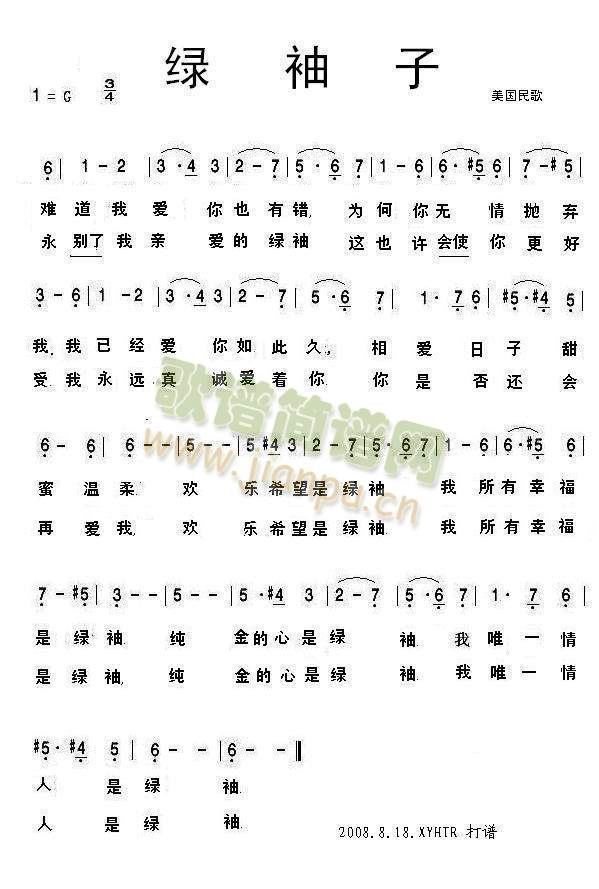 绿 袖 子
1 = G 3/4 美国民歌
6 | 1 - 2 | 3 · 4 3 | 2 - 7 | 5 · 6 7 | 1 - 6 | 6 · #5 6 | 7 - #5 |
难 道 我 爱 你 也 有 错, 为 何 你 无 情 抛 弃
永 别了 我 亲 爱 的 绿 袖 这 也 许 会使 你 更 好
3 - 6 | 1 - 2 | 3 · 4 3 | 2 - 7 | 5 · 6 7 | 1 · 7 6 | #5 · #4 5 |
我, 我 已 经 爱 你 如 此 久, 相 爱 日 子 甜
受, 我 永 远 真 诚 爱 着 你 你 是 否 还 会
6 - 6 | 6 - - | 5 - - | 5 #4 3 | 2 - 7 | 5 · 6 7 | 1 - 6 | 6 · #5 6 |
蜜 温 柔. 欢 乐 希 望 是 绿 袖 我 所 有 幸 福
再 爱 我, 欢 乐 希 望 是 绿 袖. 我 所 有 幸 福
7 - #5 | 3 - - | 5 - - | 5 · #4 3 | 2 - 7 | 5 · 6 7 | 1 · 7 6 |
是 绿 袖, 纯 金 的 心 是 绿 袖 我 唯 一 情
是 绿 袖, 纯 金 的 心 是 绿 袖 我 唯 一 情
#5 · #4 5 | 6 - - | 6 - ||
人 是 绿 袖
人 是 绿 袖
歌谱简谱网
www.jianpu.cn
2008.8.18.XYHTR 打谱